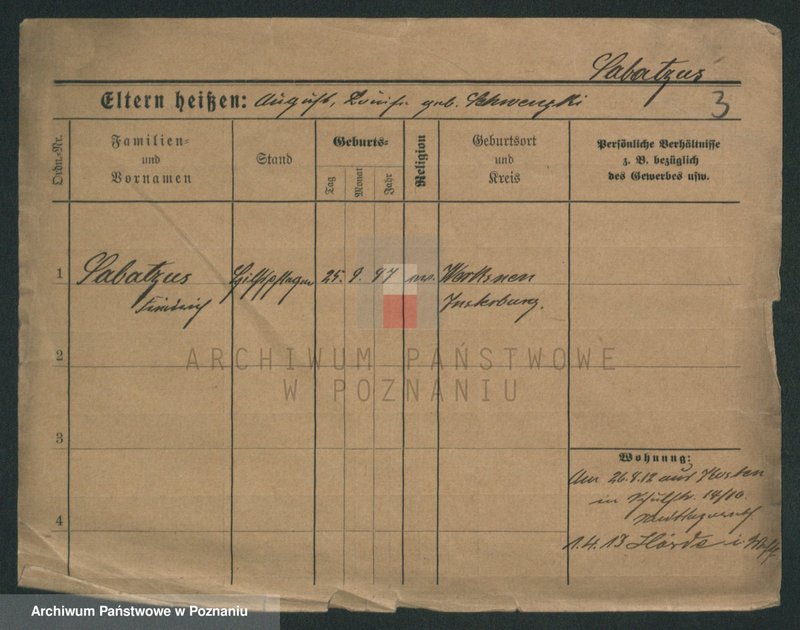 Sabatzus
Eltern heißen: August, Louise geb. Schwenzki
3
Ordn.-Nr.
Familien-
und
Vornamen
Stand
Geburts-
Tag
Monat
Jahr
Religion
Geburtsort
und
Kreis
Persönliche Verhältnisse
z. B. bezüglich
des Gewerbes usw.
1
Sabatzus
Friedrich
25. 9. 97
ev.
Insterburg.
2
ARCHIWUM PAŃSTWOWE
W POZNANIU
3
Wohnung:
Am 26.4.12 aus Kosten
in Schulstr.
4
1.4.13 Hörde i. Westf.
Archiwum Państwowe w Poznaniu